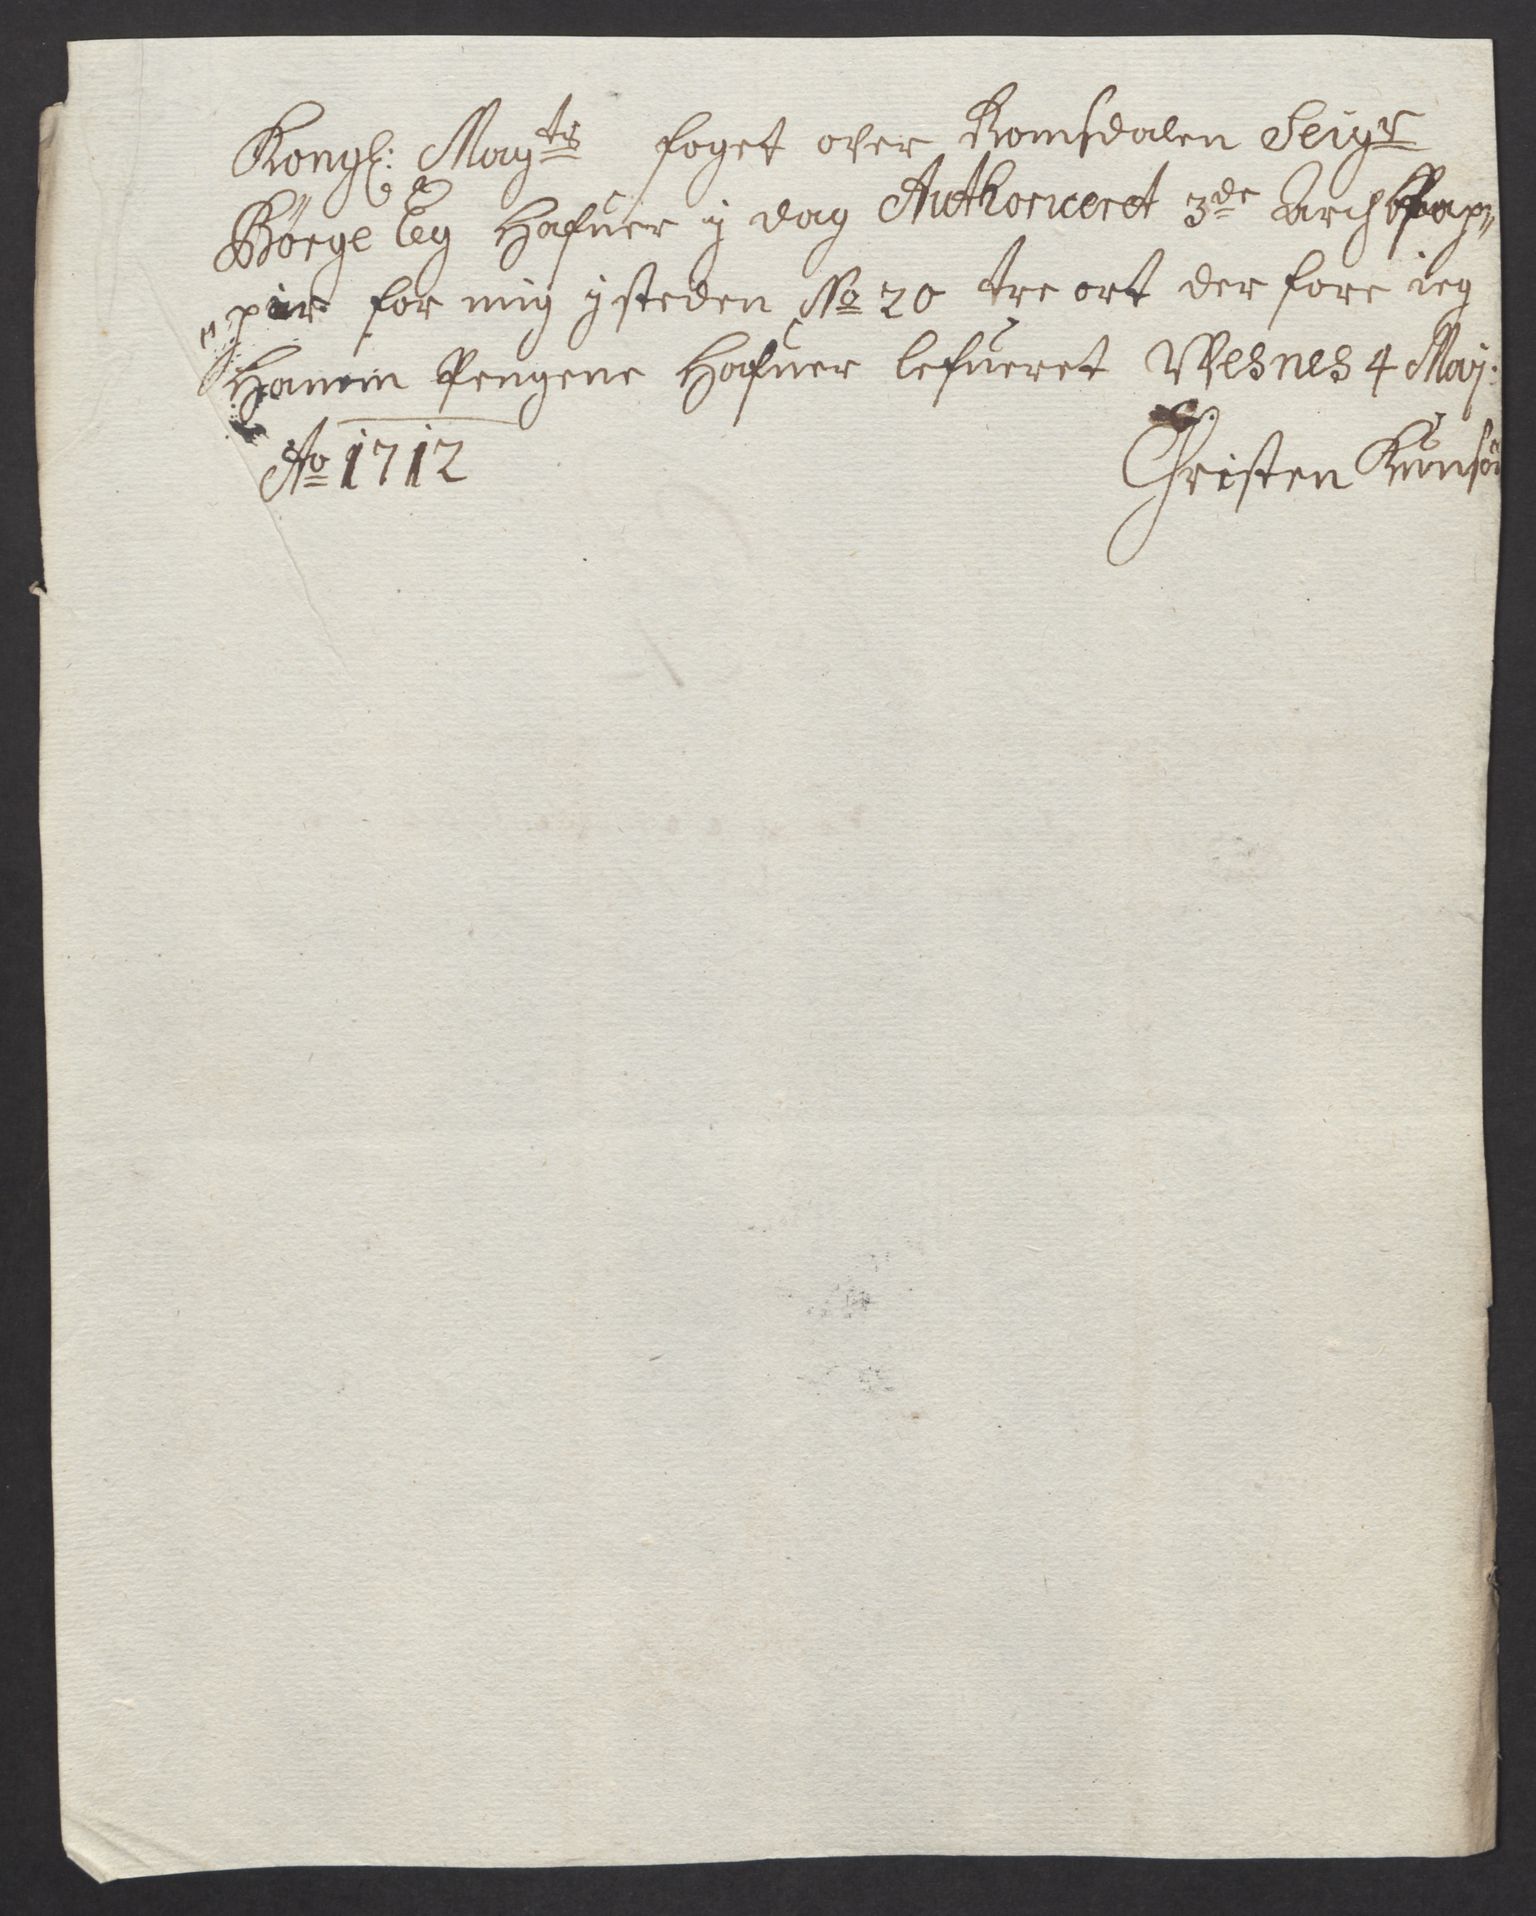 Kongl: May^ts foget over Romsdalen Seig^r
Börge Eeg Hafuer y dag Authoriceret 3^de Arch Pap„
„pir for mig ysteden No 20 tre ort der fore ieg
Hannem Pengene Hafuer lefueret Wesnes 4 Maij:
Ao 1712
Christen